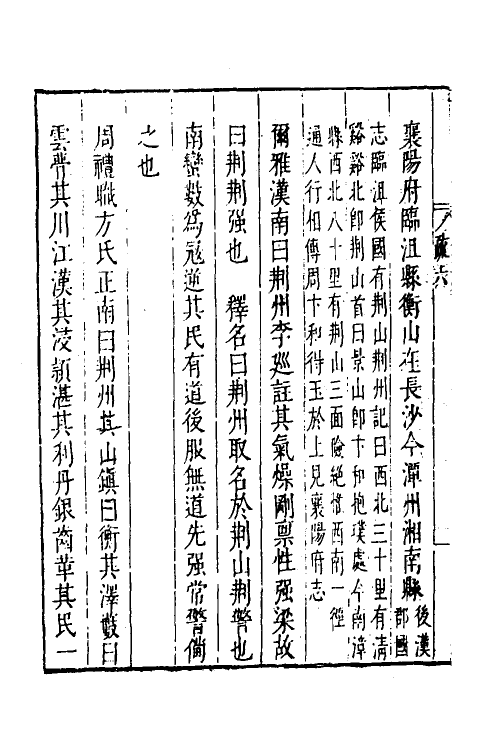 襄陽府臨沮縣衡山在長沙今潭州湘南縣後漢郡國
志臨沮侯國有荆山荆州記曰西北三十里有清
谿谿北即荆山首曰景山即卞和抱璞處今南漳
縣西北八十里有荆山三面險絶惟西南一徑
通人行相傳周卞和得玉於上見襄陽府志
爾雅漢南曰荆州李廵註其氣燥剛禀性强梁故
曰荆荆强也 釋名曰荆州取名於荆山荆警也
南蠻數為冦逆其民有道後服無道先强常警備
之也
周禮職方氏正南曰荆州其山鎮曰衡其澤藪曰
雲瞢其川江漢其浸潁湛其利丹銀齒革其民一